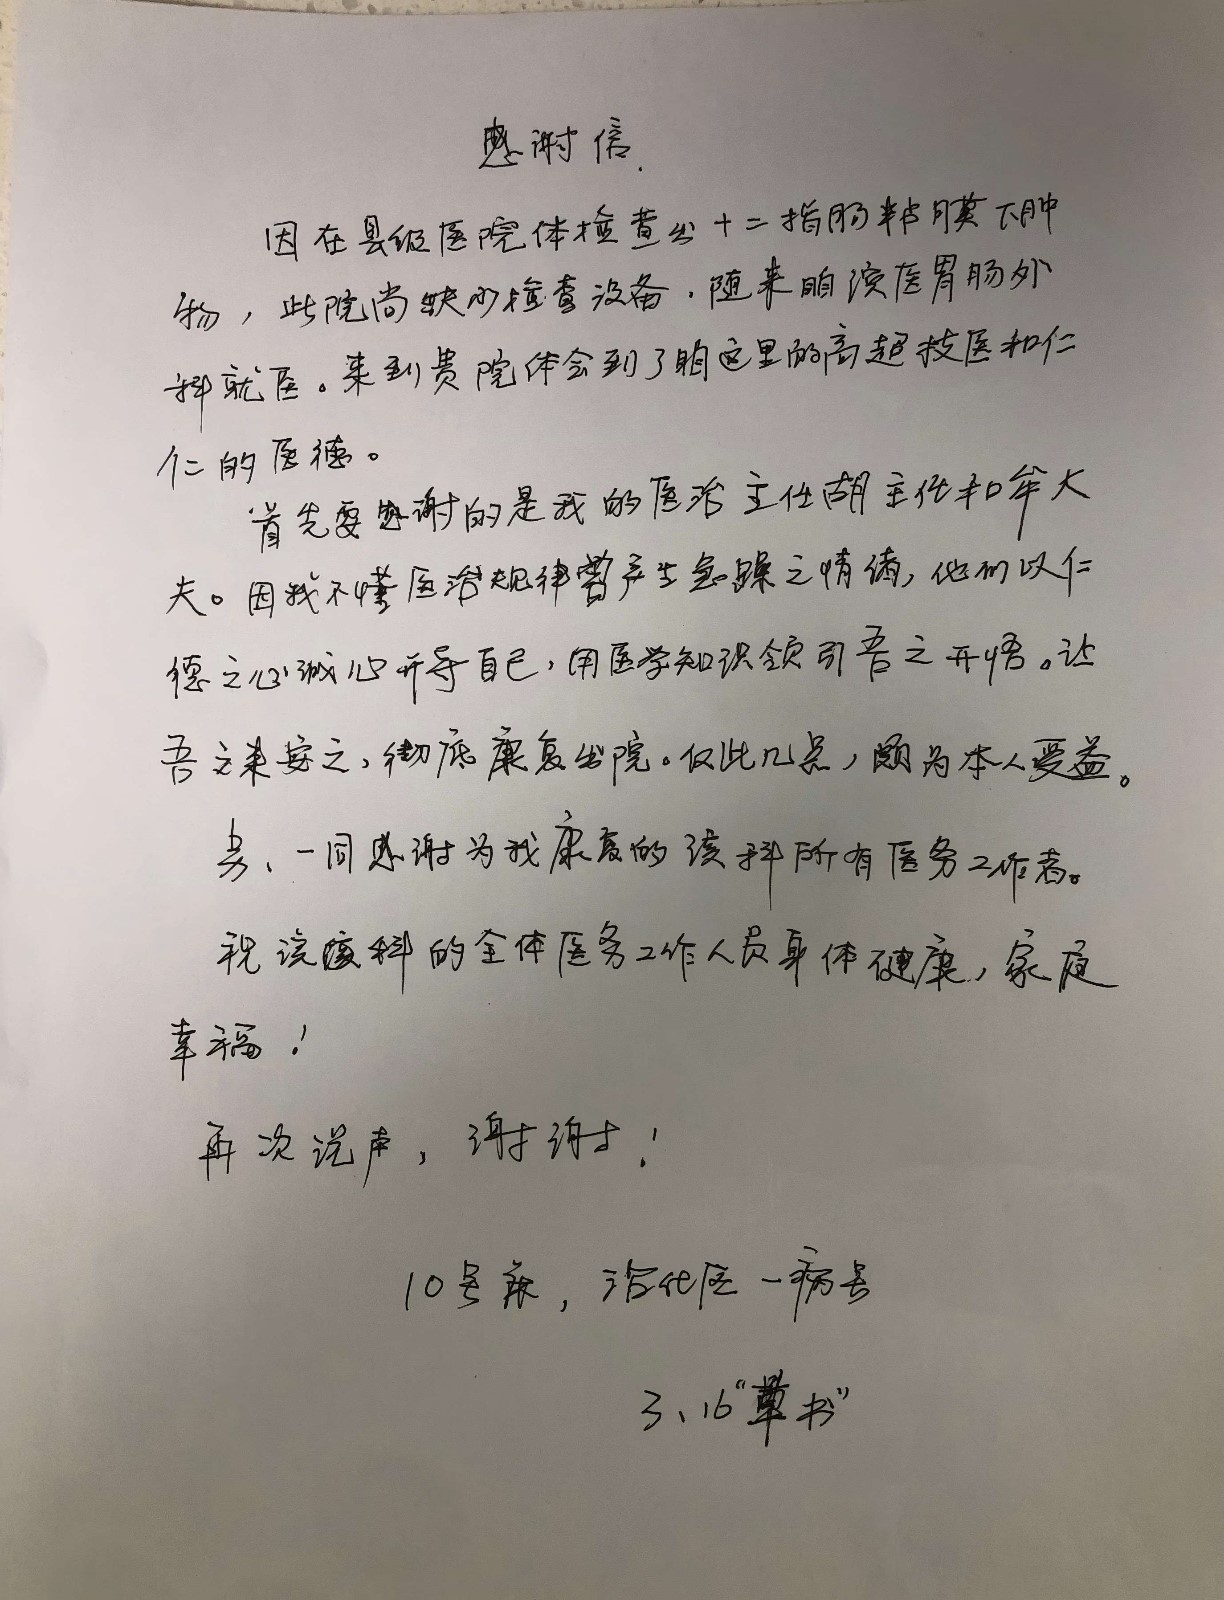 感谢信.
因在县级医院体检查出十二指肠粘膜下肿
物，此院尚缺少检查设备．随来咱滨医胃肠外
科就医。来到贵院体会到了咱这里的高超技医和仁
仁的医德。
首先要感谢的是我的医治主任胡主任和牟大
夫。因我不懂医治规律曾产生急躁之情绪，他们以仁
德之心诚心开导自己，用医学知识领引吾之开悟。让
吾之来安之，彻底康复出院。仅此几点，颇为本人受益。
另、一同感谢为我康复的该科所有医务工作者。
祝该科的全体医务工作人员身体健康，家庭
幸福！
再次说声，谢谢！
10号床，治化医一病号
3、16“草书”